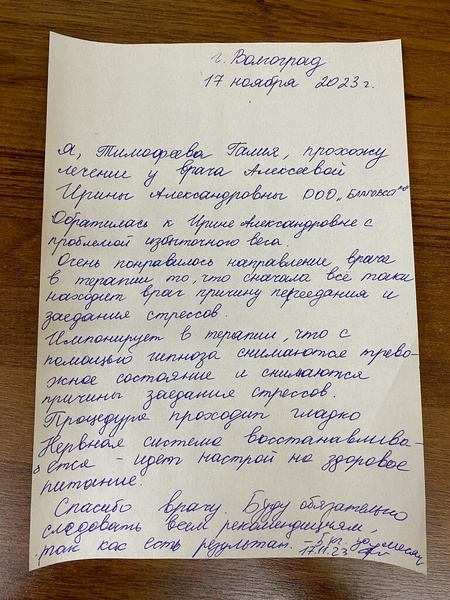 г. Волгоград
17 ноября 2023 г.
Я, Тимофеева Галия, прохожу
лечение у врача Алексеевой
Ирины Александровны ООО „БЛАГОВЕСО
Обратилась к Ирине Александровне с
проблемой избыточного веса.
Очень понравилось направление врача
в терапии то, что сначала всё таки
находит врач причину переедания и
заедания стрессов.
Импонирует в терапии, что с
помощью гипноза снимаются трево-
жное состояние и снимаются
причины заедания стрессов.
Процедура проходит гладко
Нервная система восстанавлива-
ется - идет настрой на здоровое
питание.
Спасибо врачу. Буду обязательно
следовать всем рекомендациям,
так как есть результат. – 5 кг. за месяц
17.11.23